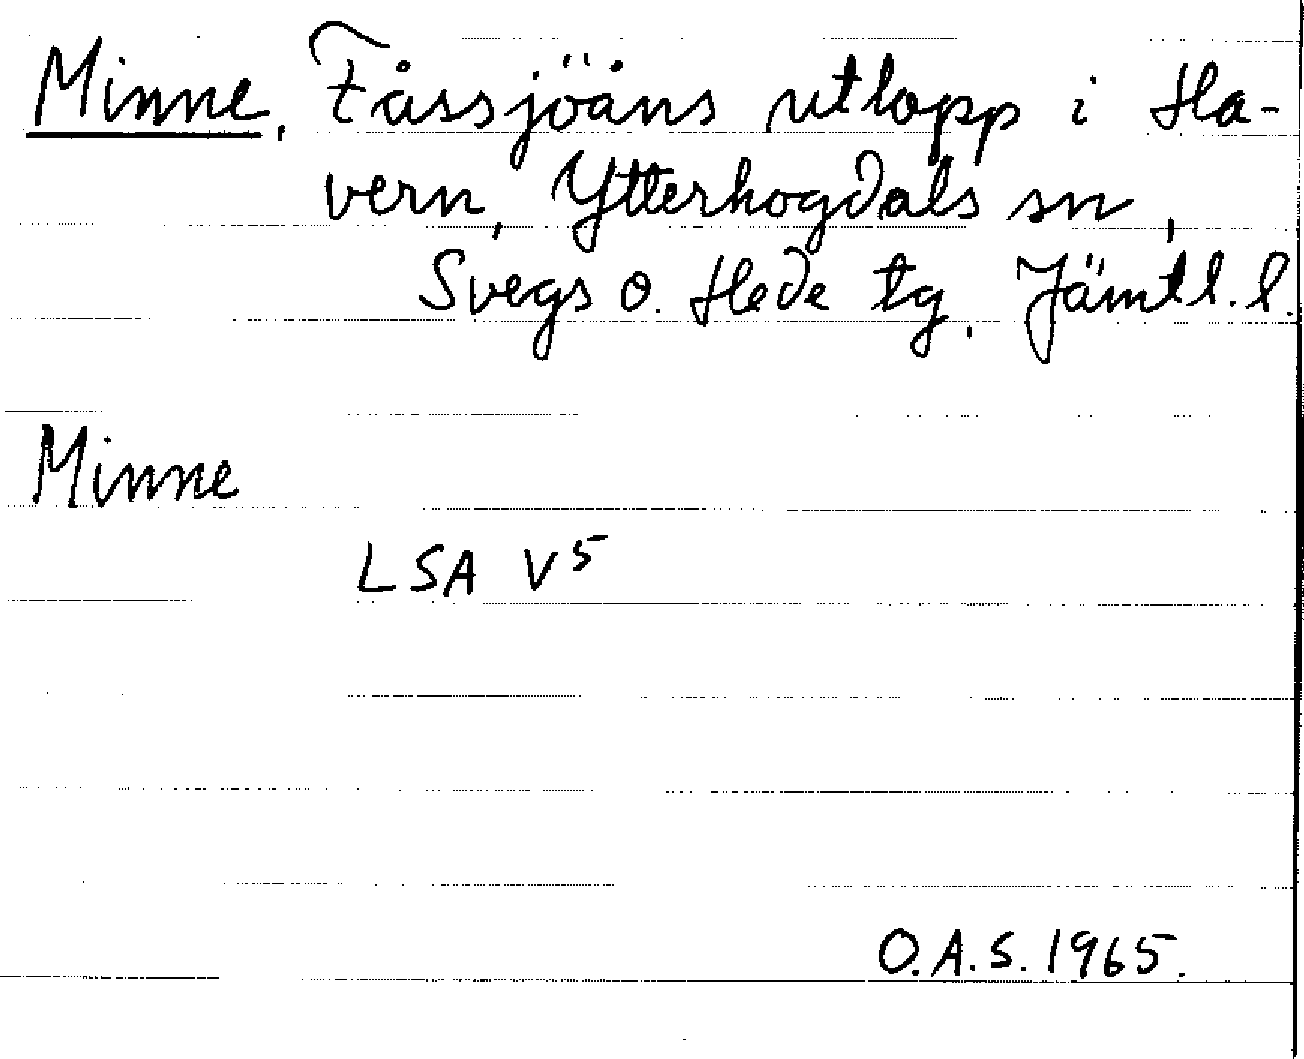 Minne, Fåssjöåns utlopp i Ha-
vern, Ytterhogdals sn,
Svegs o. Hede tg, Jämtl. l.
Minne
LSA V5
O.A.S. 1965.